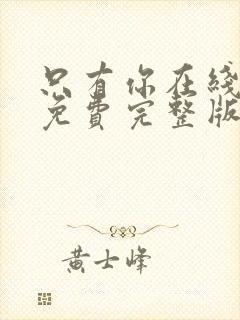 只有你在线
免费完整版
黄士峰